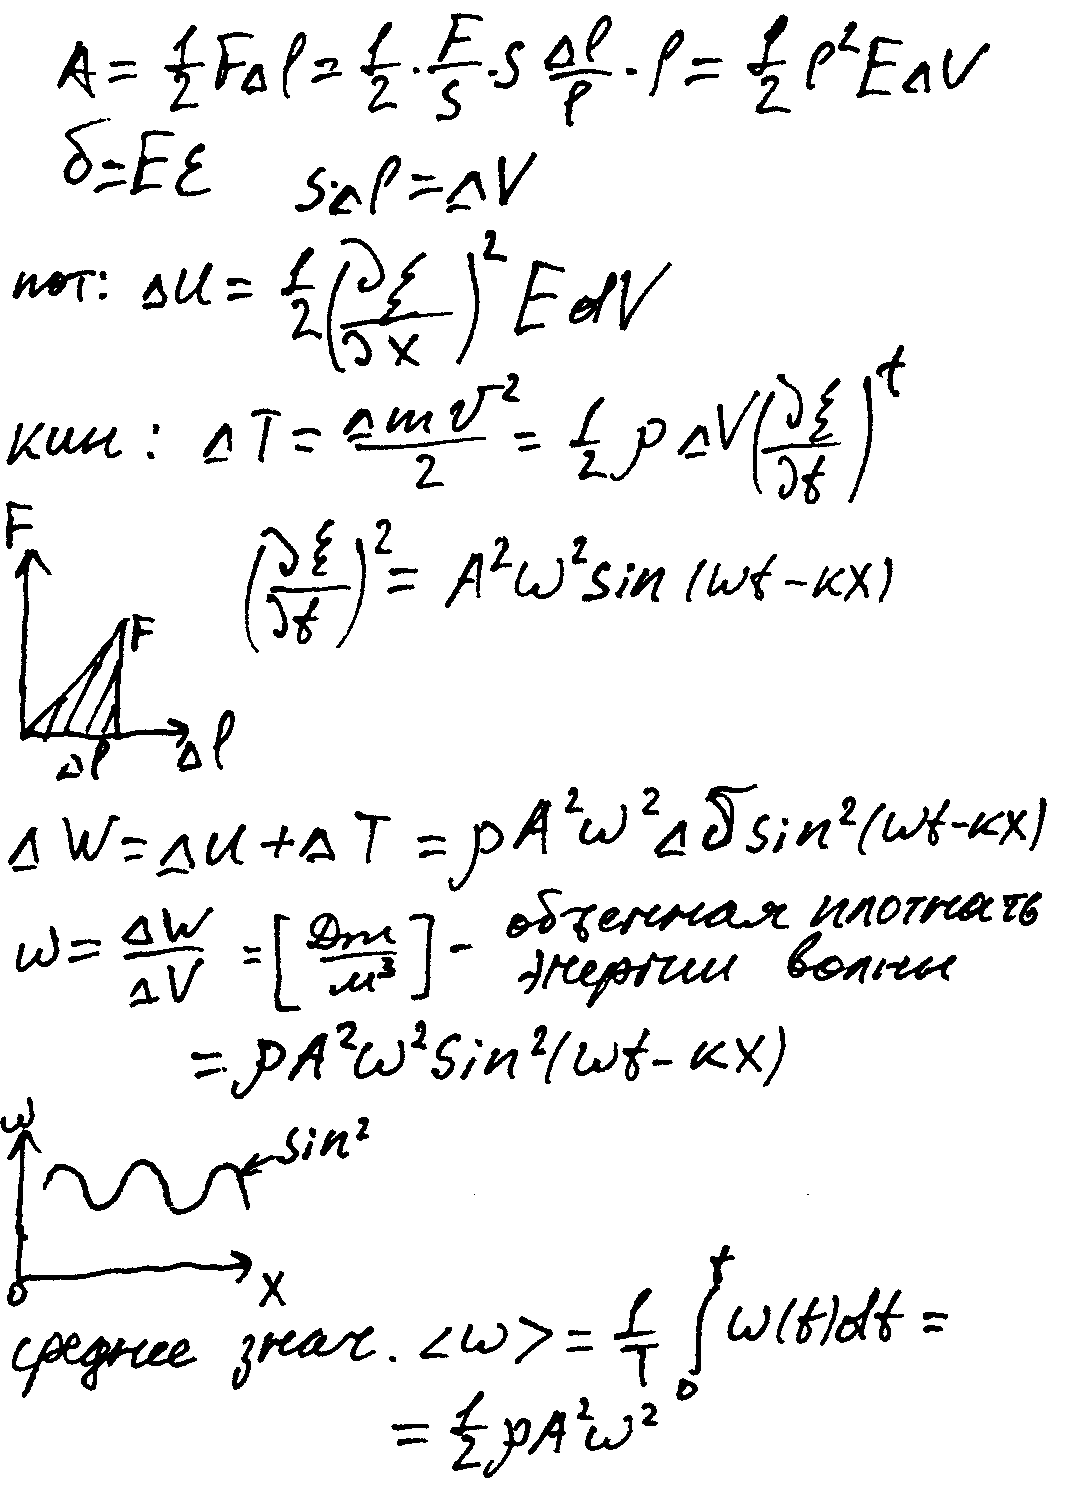 A = 1/2 FΔl = 1/2 · F/S · S Δl/l · l = 1/2 l² E ΔV
б = Eε S·Δl = ΔV
пот: ΔU = 1/2 (∂ξ/∂x)² E dV
кин: ΔT = Δm v²/2 = 1/2 ρ ΔV (∂ξ/∂t)^t
(∂ξ/∂t)² = A²ω² sin (ωt - кx)
F
F
Δl
Δl
ΔW = ΔU + ΔT = ρA²ω² Δб sin² (ωt - кx)
w = ΔW/ΔV = [Дж/м³] - объемная плотнать
энергии волны
= ρA²ω² Sin² (ωt - кx)
w
sin²
0
x
среднее знач. <w> = 1/T ∫₀ᵗ w(t)dt =
= 1/2 ρA²ω²